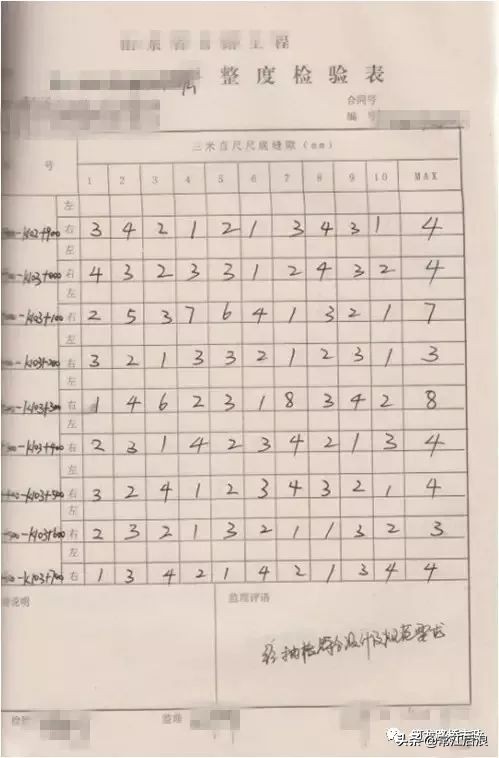 整度检验表
合同号
编号
号 三米直尺尺底缝隙（mm）
1 2 3 4 5 6 7 8 9 10 MAX
左
-K102+900 右 3 4 2 1 2 1 3 4 3 1 4
左
-K103+000 右 4 3 2 3 3 1 2 4 3 2 4
左
-K103+100 右 2 5 3 7 6 4 1 3 2 1 7
左
-K103+200 右 3 2 1 3 3 2 1 2 3 1 3
左
-K103+300 右 1 4 6 2 3 1 8 3 4 2 8
左
-K103+400 右 2 3 1 4 2 3 4 2 1 3 4
左
-K103+500 右 3 2 4 1 2 3 4 3 2 1 4
左
-K103+600 右 2 3 2 1 3 2 1 1 3 2 3
左
-K103+700 右 1 3 4 2 1 4 2 1 3 4 4
说明 监理评语
经抽检符合设计及规范要求
监理
头条